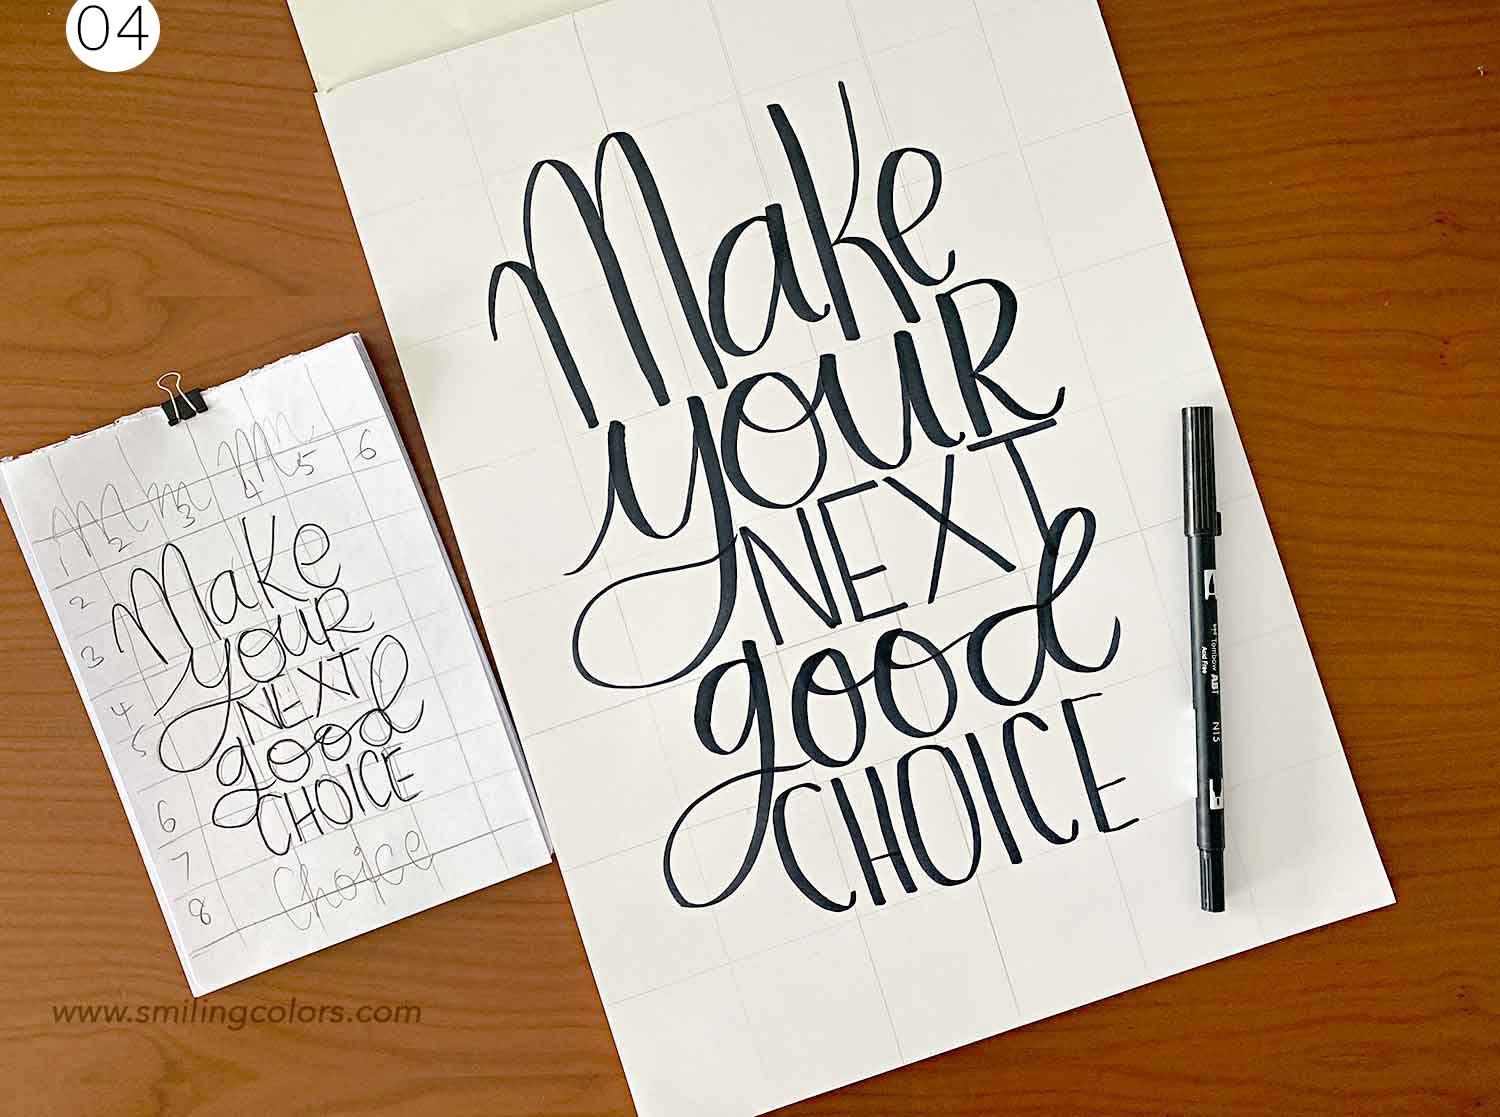 04
Make
your
NEXT
good
CHOICE
M m Mm
1 2 3 4 5 6
2
3
4
5
6
7
8
Make
your
NEXT
good
CHOICE
choice
Tombow ABT
Acid Free
N15
www.smilingcolors.com